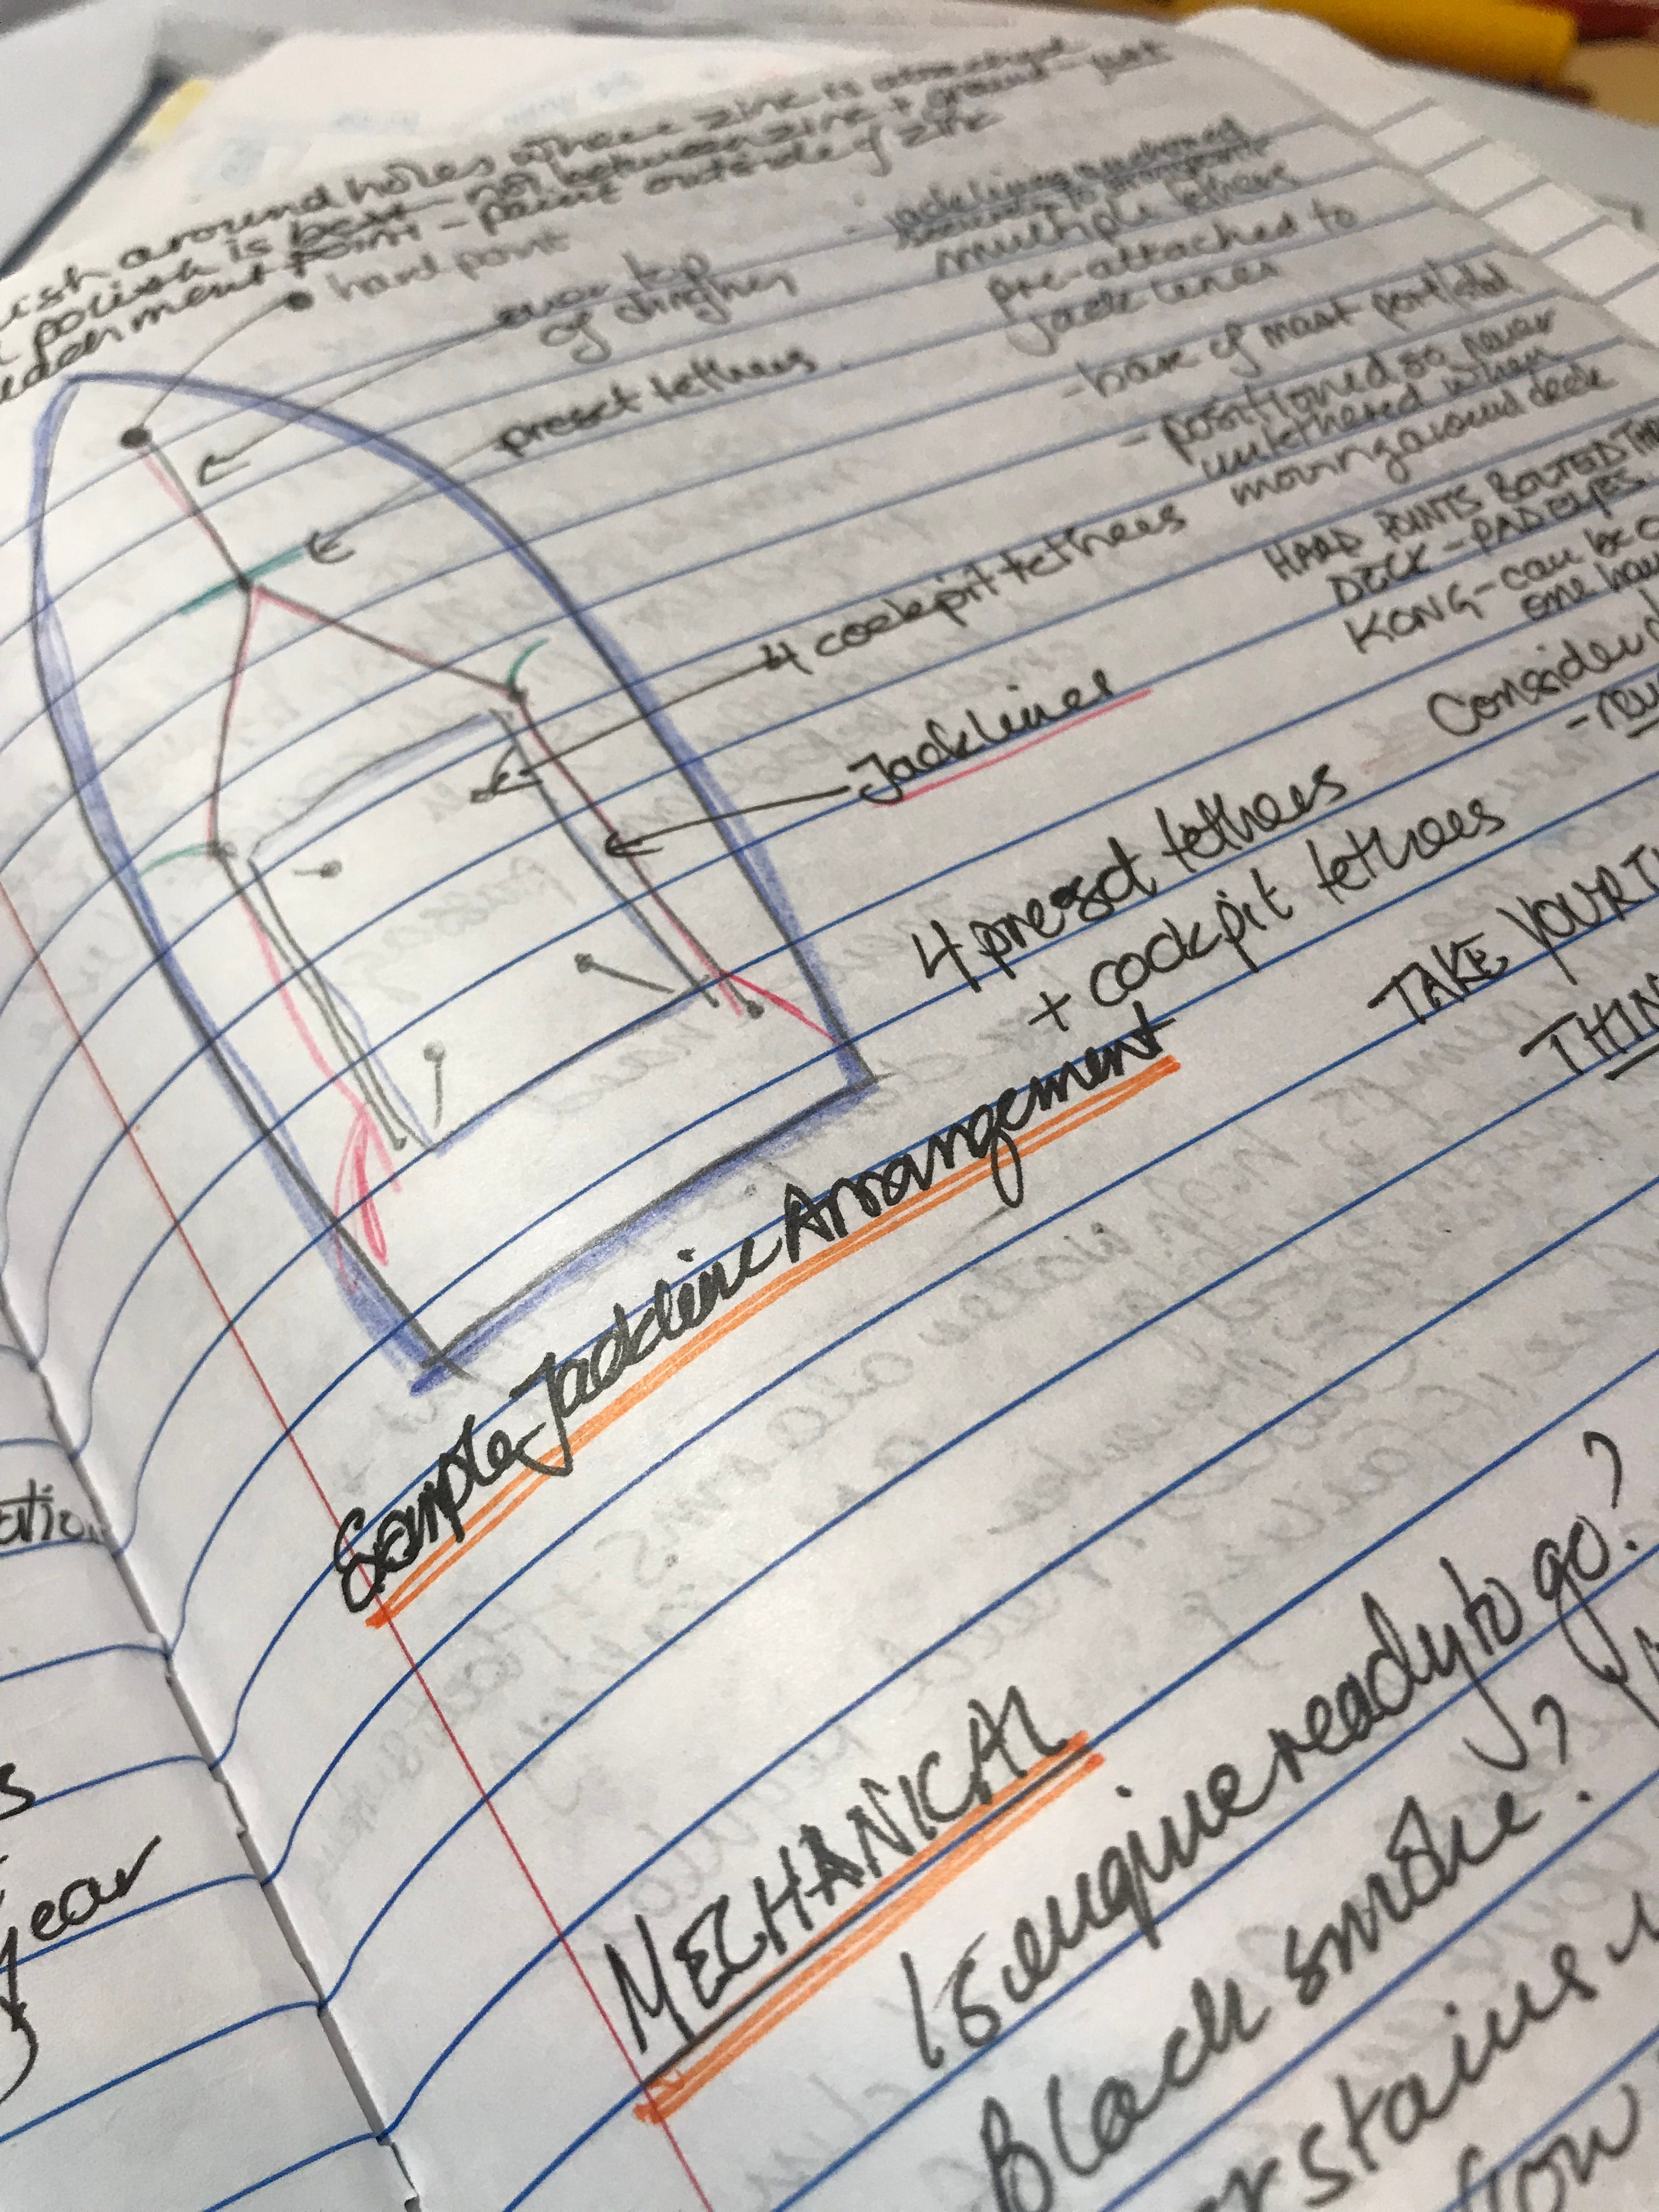 ish around holes where zinc is attached
polish is best - not between zinc + ground - just
point - paint outside of zinc
hard point
over top
of dinghy
preset tethers
jacklines anchored
multiple tethers
pre-attached to
jack lines
- base of mast port/stbd
- positioned so never
untethered when
moving around deck
HARD POINTS BOLTED THR
DECK - PAD EYES
KONG - can be o
one han
4 cockpit tethers
Jacklines
Consider
4 preset tethers
+ cockpit tethers
TAKE YOUR TI
THIN
Sample Jackline Arrangement
MECHANICAL
Is engine ready to go?
Black smoke?
stains
atio
s
gear